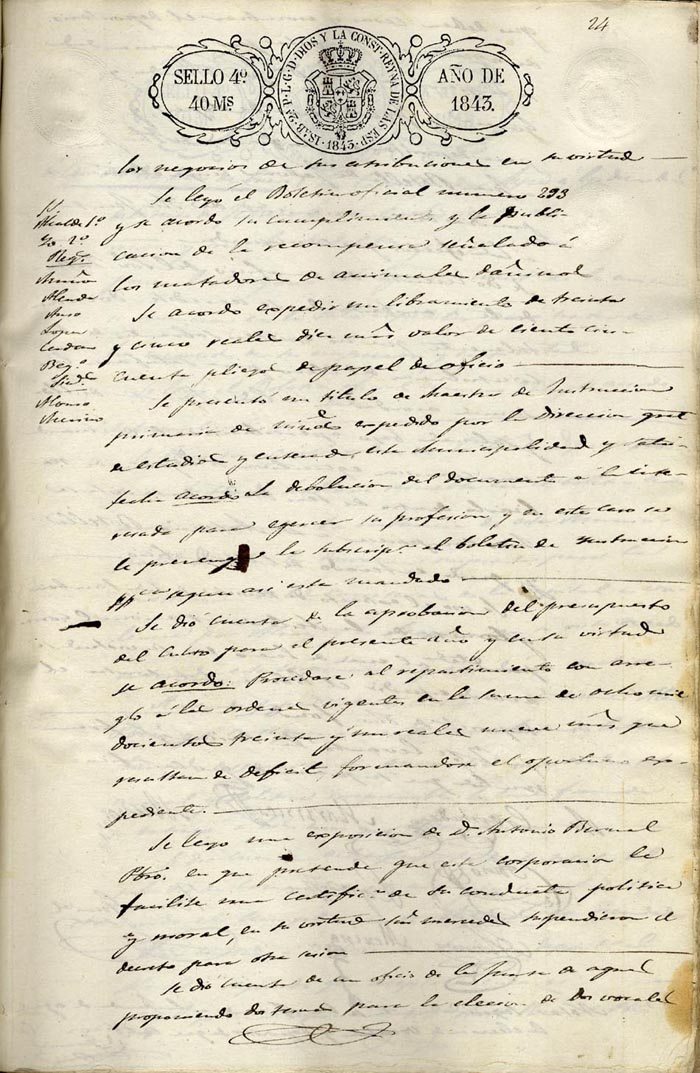 24
SELLO 4º
40 Ms
ISAB. 2ª P. L. G. D. DIOS Y LA CONST. REYNA DE LAS ESP. 1843
AÑO DE
1843.
los negocios de sus atribuciones en su virtud
Se leyó el Boletin oficial numero 293
y se acordo su cumplimiento y la publi
cacion de la recompensa señalada á
los matadores de animales dañinos
Se acordo expedir un libramiento de treinta
y cinco reales diez mrs valor de ciento cin
cuenta pliegos de papel de oficio
Se presentó un titulo de Maestra de Instruccion
primaria de expedido por la Direccion gral
de estudios y enterada esta Municipalidad y satis
fecha acordó la debolucion del documento á la inte
resada para egercer su profesion y en este caso se
le prevenga la subscripn al boletin de Instruccion
ppca segun asi esta mandado
Se dió cuenta de la aprobacion del presupuesto
del Culto para el presente año y en su virtud
se acordo: Procedase al repartimiento con arre
glo á las ordenes vigentes en la suma de ocho mil
docientos treinta y un reales nueve mrs que
resultan de deficit, formandose el oportuno ex-
pediente.
Se leyo una exposicion de D. Antonio Bernal
Pbro. en que pretende que esta corporacion le
facilite una certificn de su conducta politica
y moral, en su virtud sus mercedes suspendieron el
decreto para otra sesion
Se dió cuenta de un oficio de la Junta de
proponiendo dos ternas para la eleccion de dos vocales
SS.
Alcalde 1º
Yo 2º
Regs
Alonso